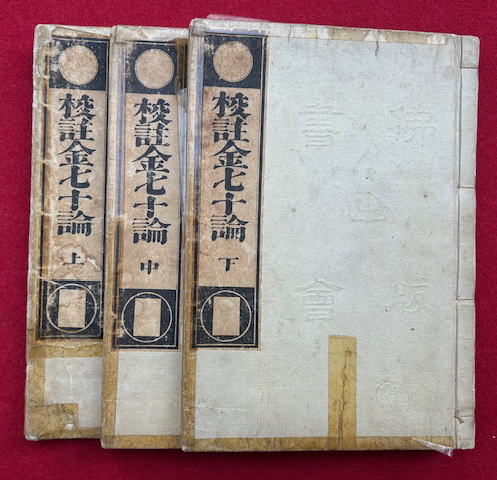 校註金七十論 上
校註金七十論 中
校註金七十論 下